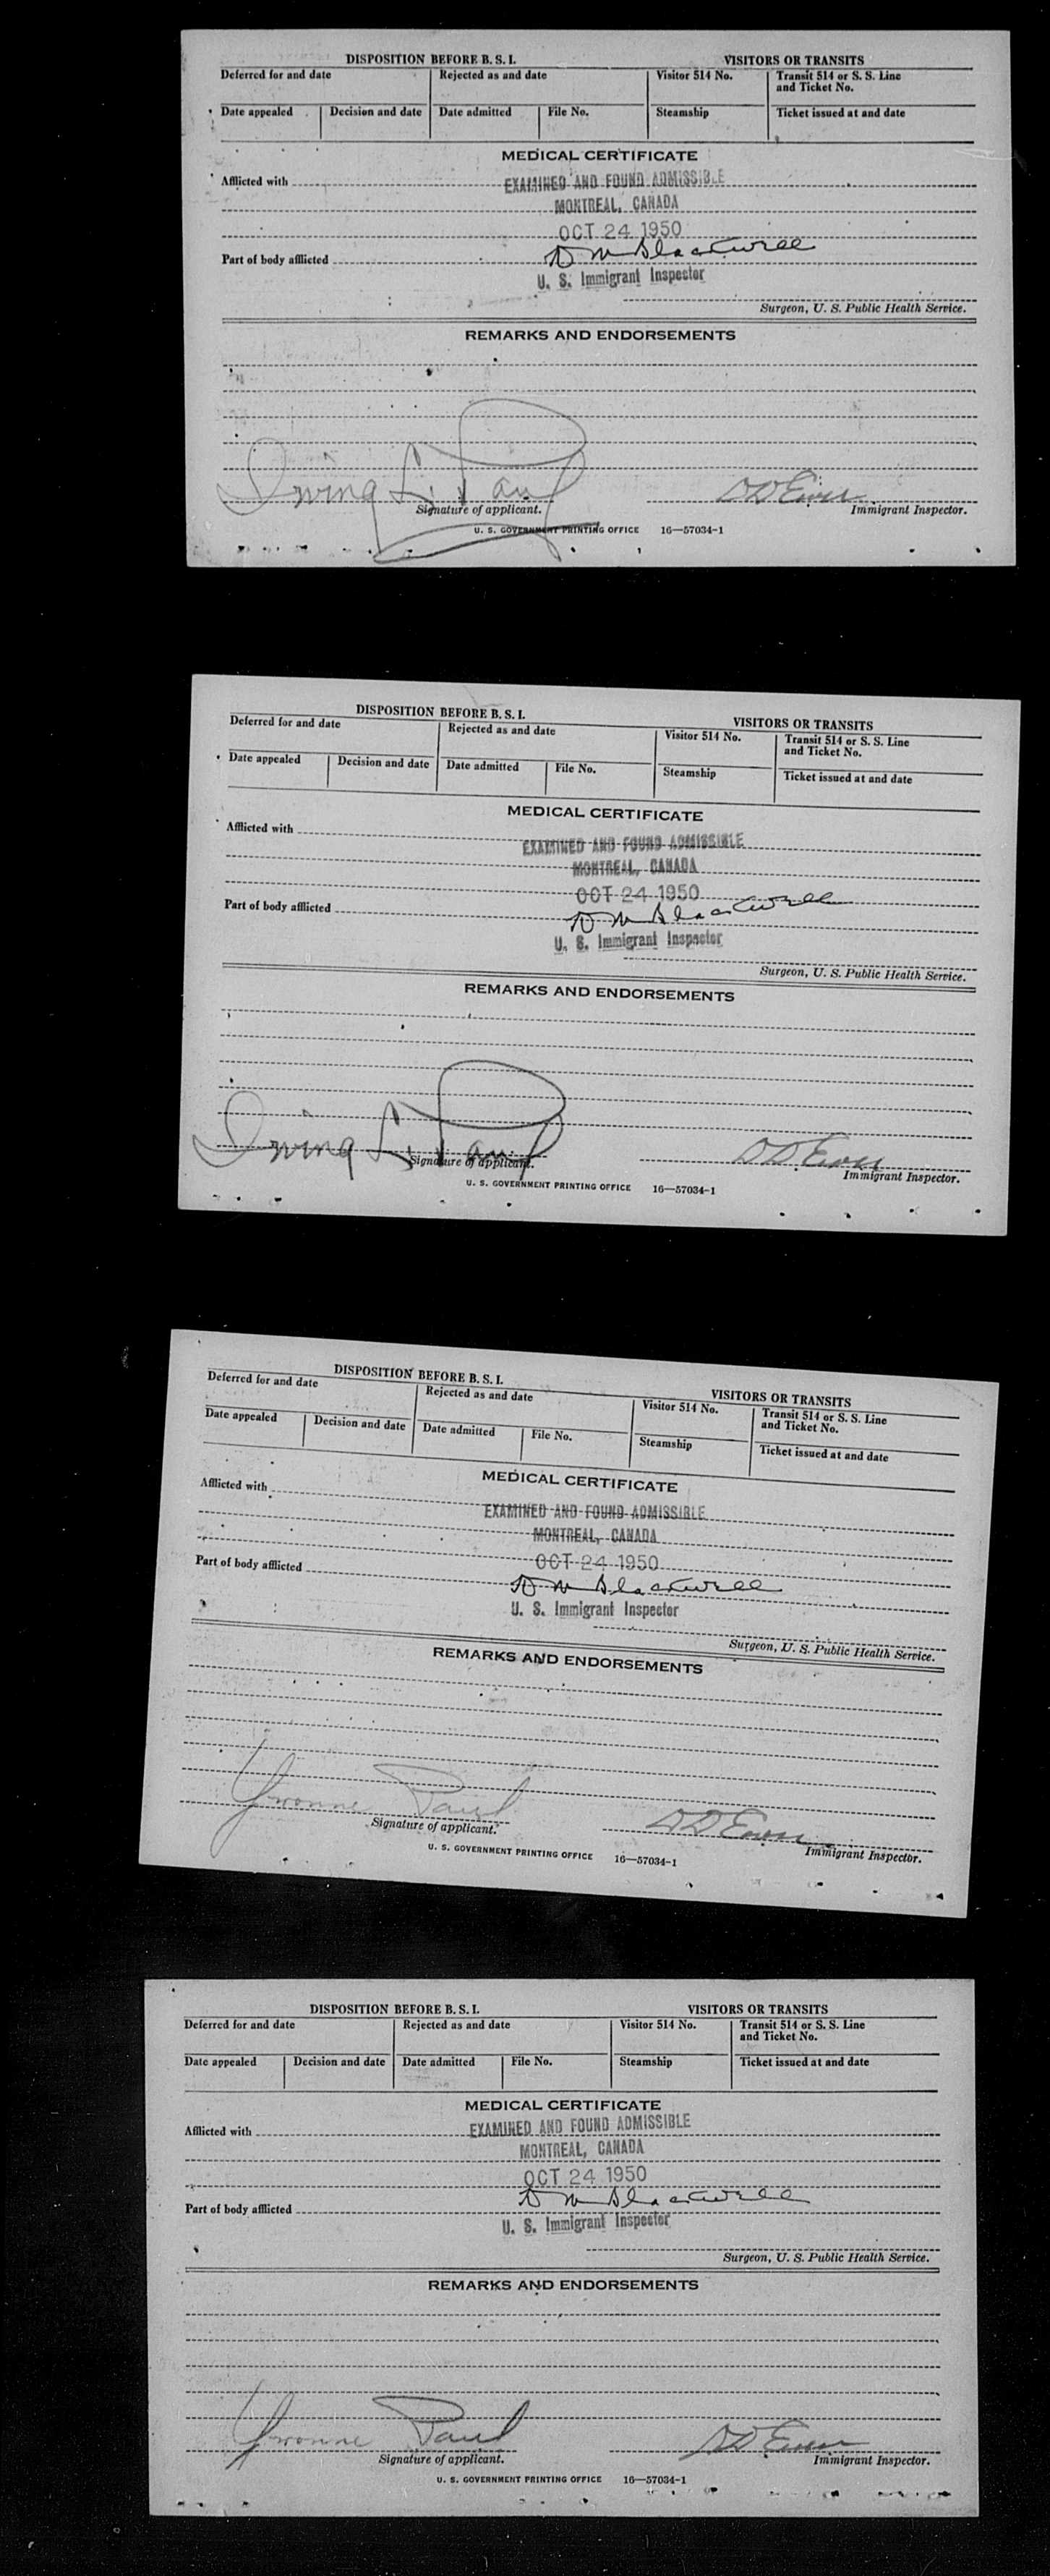 DISPOSITION BEFORE B. S. I. VISITORS OR TRANSITS
Deferred for and date Rejected as and date Visitor 514 No. Transit 514 or S. S. Line and Ticket No.
Date appealed Decision and date Date admitted File No. Steamship Ticket issued at and date
MEDICAL CERTIFICATE
Afflicted with EXAMINED AND FOUND ADMISSIBLE
MONTREAL, CANADA
OCT 24 1950
Part of body afflicted D M Blackwell
U. S. Immigrant Inspector
Surgeon, U. S. Public Health Service.
REMARKS AND ENDORSEMENTS
Irving L. Paul
Signature of applicant. Immigrant Inspector.
U. S. GOVERNMENT PRINTING OFFICE 16—57034-1
DISPOSITION BEFORE B. S. I. VISITORS OR TRANSITS
Deferred for and date Rejected as and date Visitor 514 No. Transit 514 or S. S. Line and Ticket No.
Date appealed Decision and date Date admitted File No. Steamship Ticket issued at and date
MEDICAL CERTIFICATE
Afflicted with EXAMINED AND FOUND ADMISSIBLE
MONTREAL, CANADA
OCT 24 1950
Part of body afflicted D M Blackwell
U. S. Immigrant Inspector
Surgeon, U. S. Public Health Service.
REMARKS AND ENDORSEMENTS
Irving L. Paul
Signature of applicant. Immigrant Inspector.
U. S. GOVERNMENT PRINTING OFFICE 16—57034-1
DISPOSITION BEFORE B. S. I. VISITORS OR TRANSITS
Deferred for and date Rejected as and date Visitor 514 No. Transit 514 or S. S. Line and Ticket No.
Date appealed Decision and date Date admitted File No. Steamship Ticket issued at and date
MEDICAL CERTIFICATE
Afflicted with EXAMINED AND FOUND ADMISSIBLE
MONTREAL, CANADA
OCT 24 1950
Part of body afflicted D M Blackwell
U. S. Immigrant Inspector
Surgeon, U. S. Public Health Service.
REMARKS AND ENDORSEMENTS
Yvonne Paul
Signature of applicant. Immigrant Inspector.
U. S. GOVERNMENT PRINTING OFFICE 16—57034-1
DISPOSITION BEFORE B. S. I. VISITORS OR TRANSITS
Deferred for and date Rejected as and date Visitor 514 No. Transit 514 or S. S. Line and Ticket No.
Date appealed Decision and date Date admitted File No. Steamship Ticket issued at and date
MEDICAL CERTIFICATE
Afflicted with EXAMINED AND FOUND ADMISSIBLE
MONTREAL, CANADA
OCT 24 1950
Part of body afflicted D M Blackwell
U. S. Immigrant Inspector
Surgeon, U. S. Public Health Service.
REMARKS AND ENDORSEMENTS
Yvonne Paul
Signature of applicant. Immigrant Inspector.
U. S. GOVERNMENT PRINTING OFFICE 16—57034-1